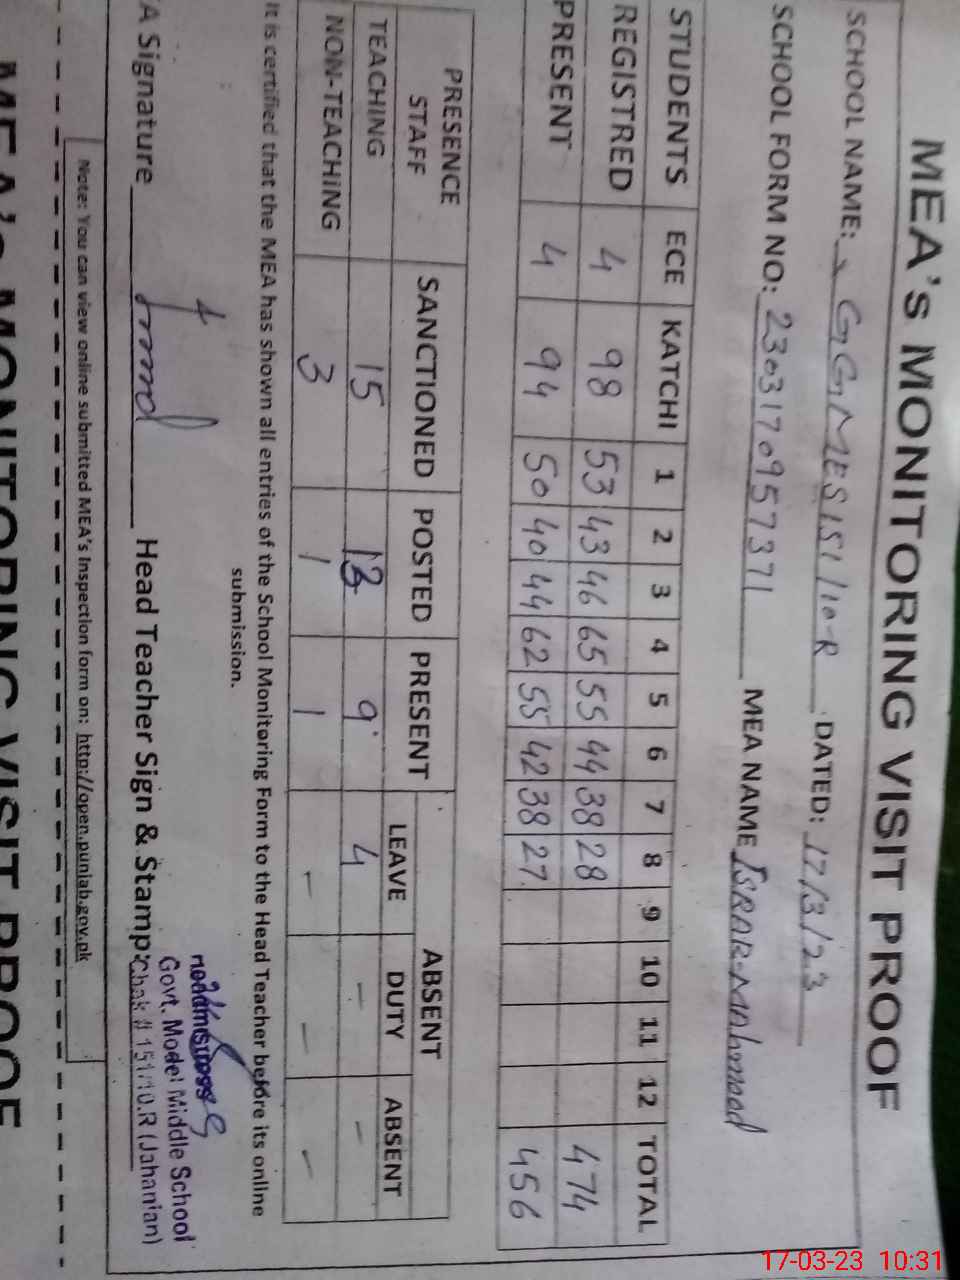 MEA's MONITORING VISIT PROOF
SCHOOL NAME: GGMES 151/10-R DATED: 17/3/23
SCHOOL FORM NO: 2303170957371 MEA NAME ISRAR-Mahmood
STUDENTS ECE KATCHI 1 2 3 4 5 6 7 8 9 10 11 12 TOTAL
REGISTRED 4 98 53 43 46 65 55 44 38 28 474
PRESENT 4 94 50 40 44 62 55 42 38 27 456
PRESENCE STAFF SANCTIONED POSTED PRESENT ABSENT
LEAVE DUTY ABSENT
TEACHING 15 13 9 4 - -
NON-TEACHING 3 1 1 - - -
It is certified that the MEA has shown all entries of the School Monitoring Form to the Head Teacher before its online
submission.
A Signature Head Teacher Sign & Stamp:
Headmistress
Govt. Model Middle School
Chak # 151/10.R (Jahanian)
Note: You can view online submitted MEA's Inspection form on: http://open.punjab.gov.pk
MEA's MONITORING VISIT PROOF
17-03-23 10:31